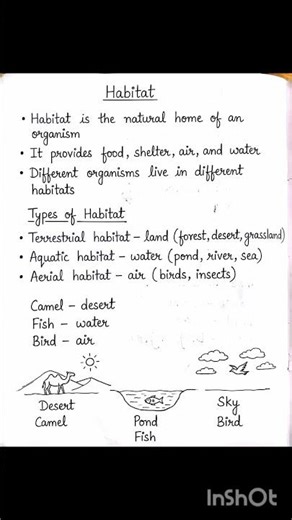 Habitat
• Habitat is the natural home of an
organism
• It provides food, shelter, air, and water
• Different organisms live in different
habitats
Types of Habitat
• Terrestrial habitat – land (forest, desert, grassland)
• Aquatic habitat – water (pond, river, sea)
• Aerial habitat – air (birds, insects)
Camel – desert
Fish – water
Bird – air
Desert
Camel
Pond
Fish
Sky
Bird
InShOt